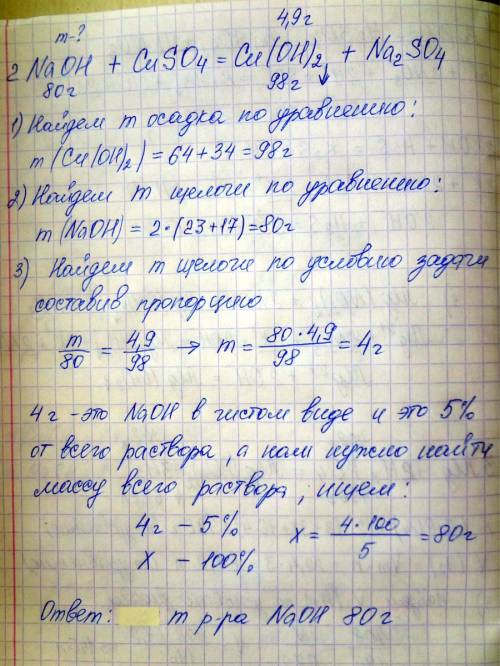 4,9г
m-?
2 NaOH + CuSO4 = Cu(OH)2↓ + Na2SO4
80г 98г
1) Найдем m осадка по уравнению:
m (Cu(OH)2) = 64+34 = 98г
2) Найдем m щелочи по уравнению:
m (NaOH) = 2·(23+17)=80г
3) Найдем m щелочи по условию задачи
составив пропорцию
m/80 = 4,9/98 → m = 80·4,9/98 = 4г
4г -это NaOH в чистом виде и это 5%
от всего раствора, а нам нужно найти
массу всего раствора, ищем:
4г – 5%
x – 100%
x = 4·100/5 = 80г
Ответ: m р-ра NaOH 80г